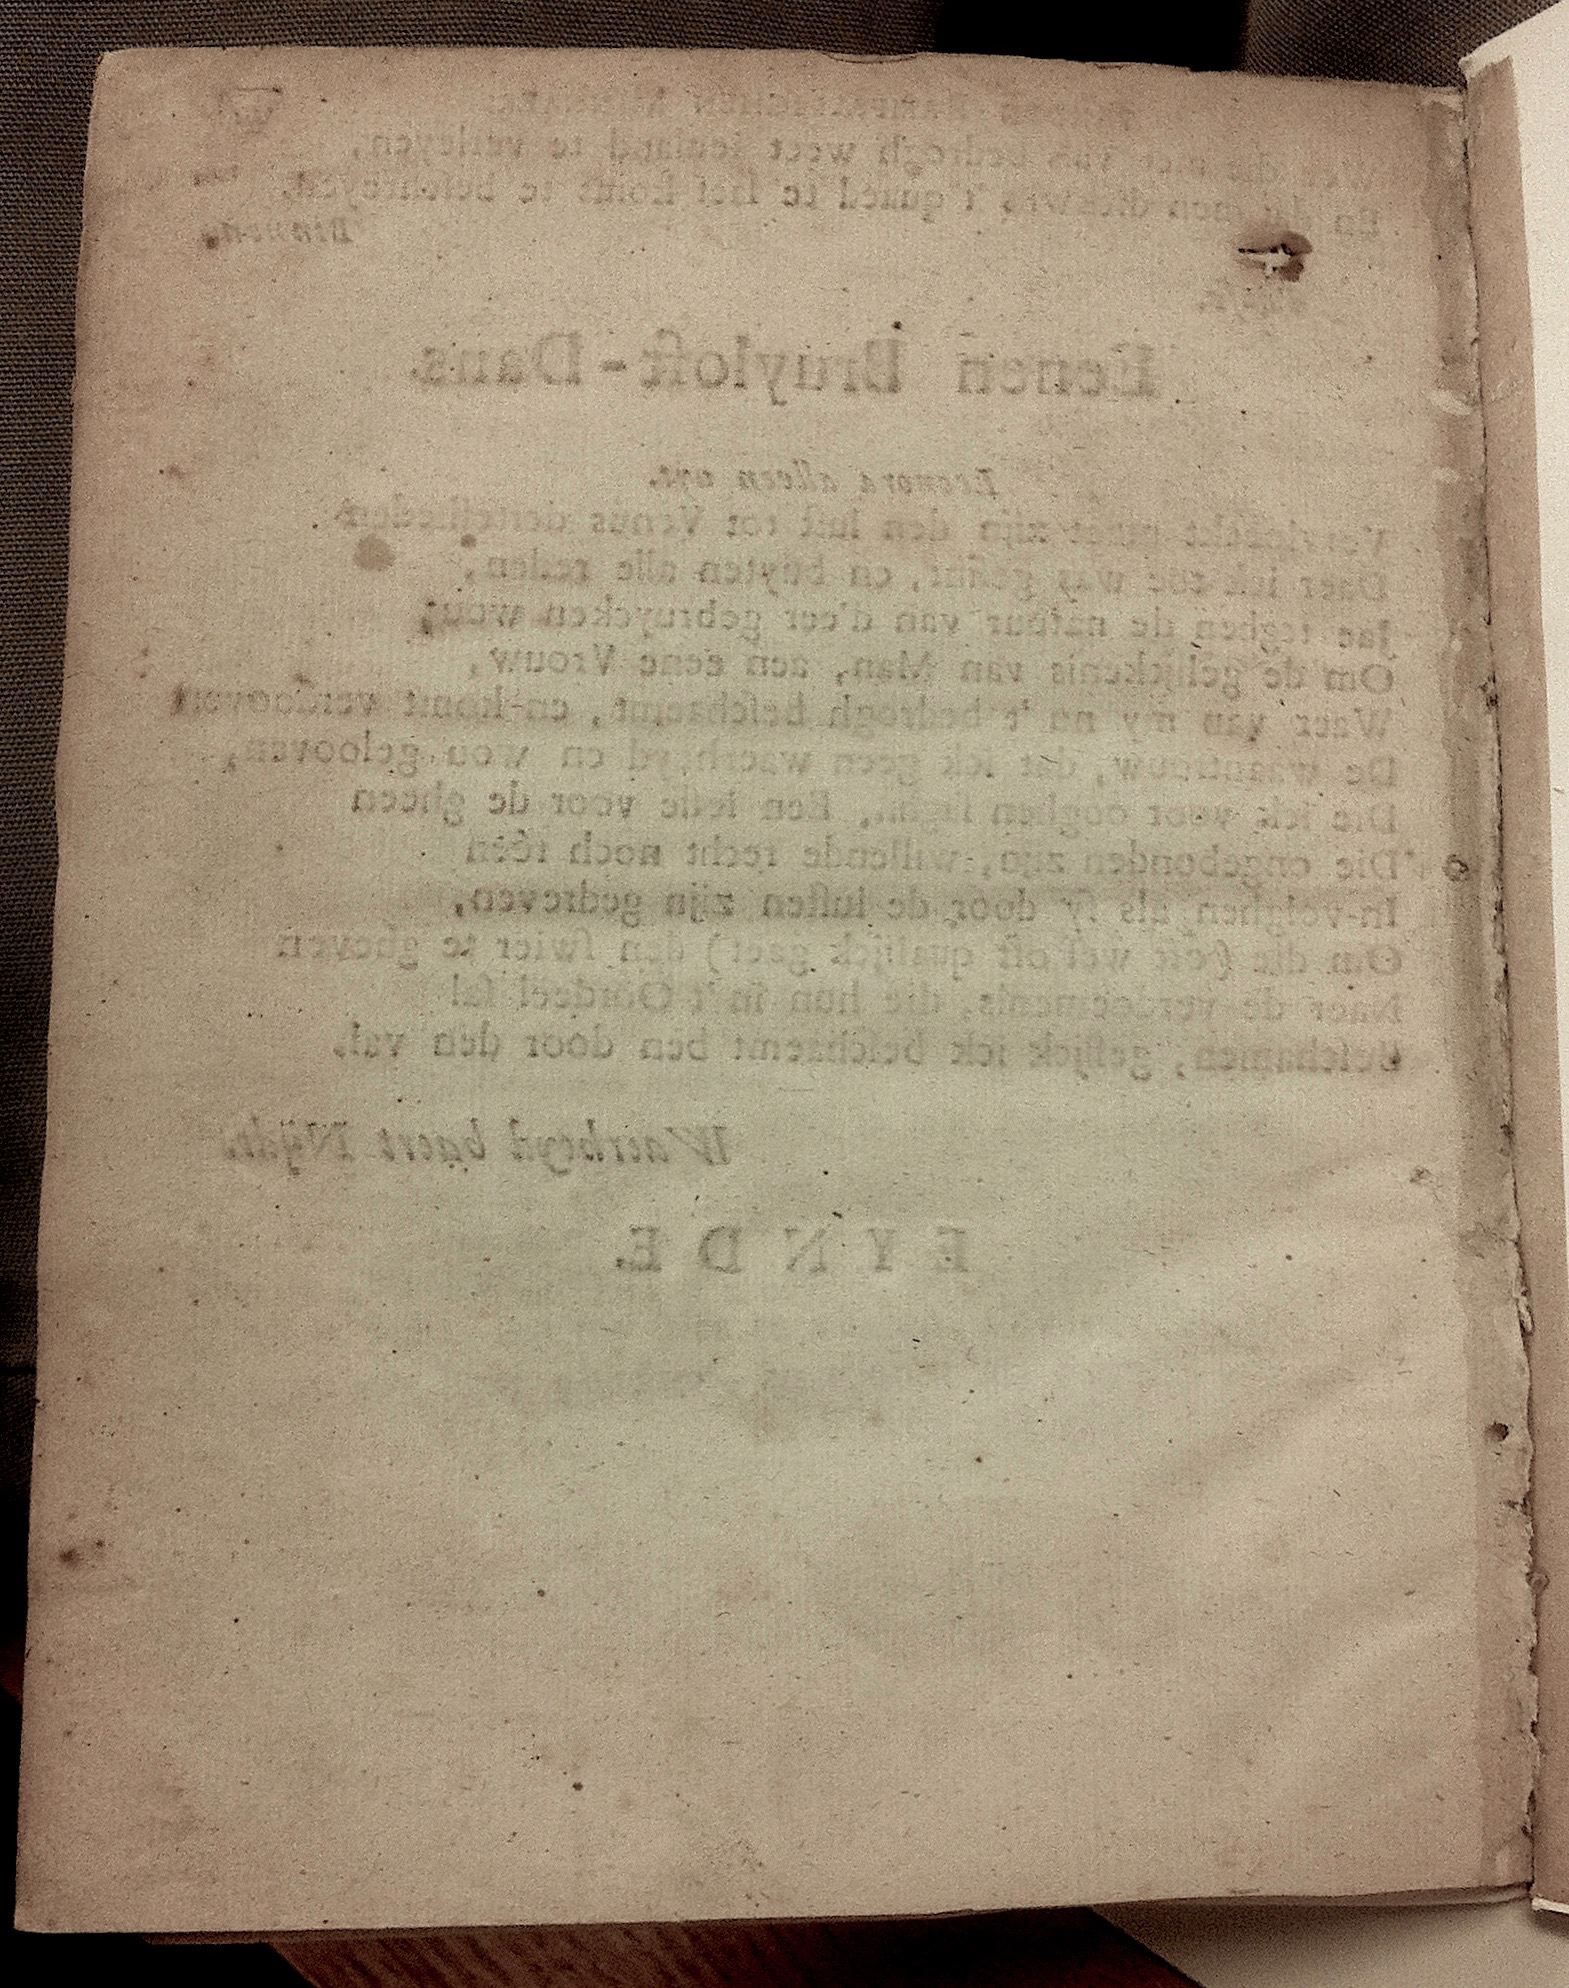 Wen die met van bedrogh weet iemand te verleyen,
En dat men dickwels 't quaed te laet komt te beschreyen,
Binnen.
Eenen Bruyloft-Dans.
Leonora alleen uyt.
Vervloeckt moet zijn den lust tot Venus
Daer ick toe was gesint, en buyten alle reden,
Jae teghen de natuur van d'eer gebruycken wou;
Om de gelijckenis van Man, aen eene Vrouw,
Weer van my nu 't bedrogh beschaemt, en komt verdooven
De waantrouw, dat ick geen waerheyd en wou gelooven,
Die ick voor ooghen sagh. Een lesse voor de gheen
Die ongebonden zijn, willende recht noch reên
In-volghen, als sy door de lusten zijn gedreven,
Om die (oft wel oft qualijck gaet) den swier te gheven
Naer de verdoemenis, die hun in 't Oordeel sal
Beschamen, gelijck ick beschaemt ben door den val.
Waerheyd baert Nijdt.
EYNDE.